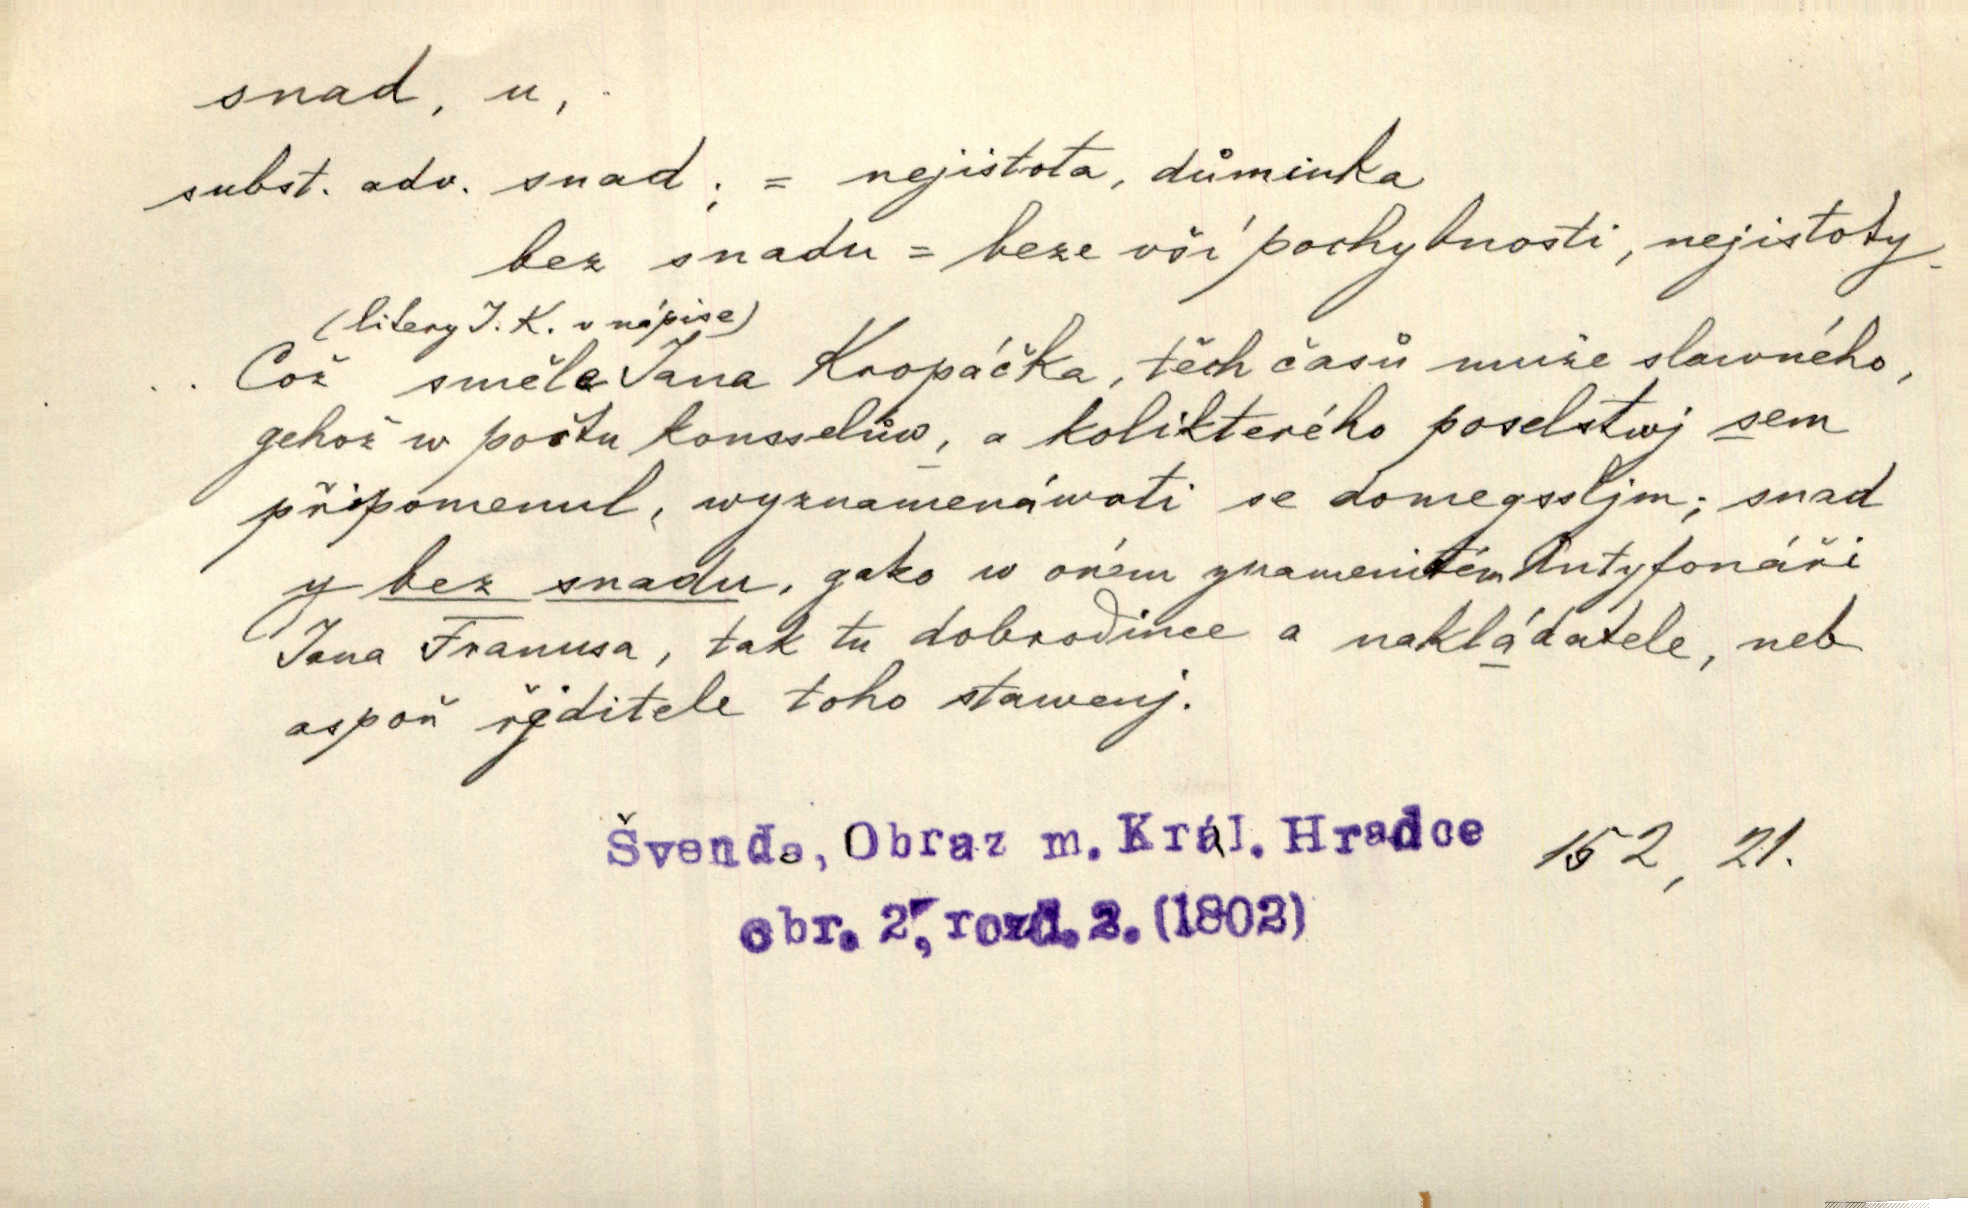 snad, u,
subst. adv. snad; = nejistota, důminka
bez snadu = beze vší pochybnosti, nejistoty
(litery J. K. v nápise)
.. Což směle Jana Kropáčka, těch časů muže slawného,
gehož w počtu konsselůw, a kolikterého poselstwj sem
připomenul, wyznamenáwati se domegssljm; snad
y bez snadu, gako w oném znamenitém Antyfonáři
Jana Franusa, tak tu dobrodince a nakládatele, neb
aspoň řjditele toho stawenj.
Švenda, Obraz m. Král. Hradce 152, 21.
obr. 2, rozd. 2. (1802)